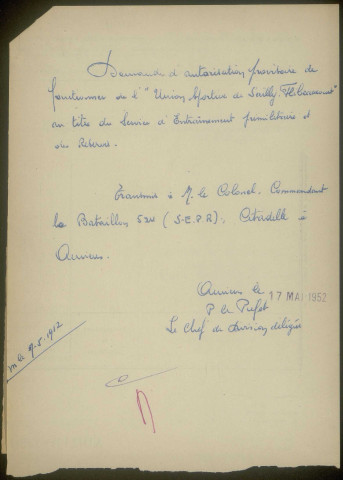 Demande d'autorisation provisoire de
fonctionner de l'"Union Sportive de Sailly-Flibeaucourt"
au titre du Service d'Entraînement prémilitaire et
des Réserves.
Transmis à M. le Colonel, Commandant
le Bataillon 524 (S.E.P.R), Citadelle à
Amiens.
Amiens le 17 MAI 1952
P le Préfet
Le Chef de Division délégué